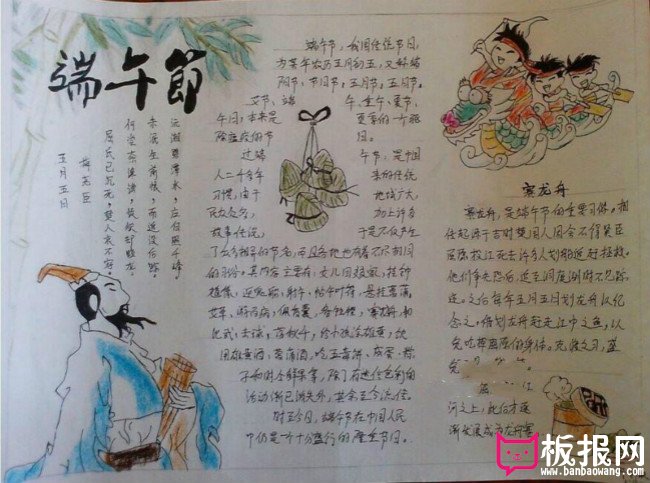 端午節
五月五日
梅尧臣
屈氏已沉死，楚人哀不容。
何尝奈谗谤，徒欲却蛟龙。
未泯生前恨，而追没后踪。
沅湘碧潭水，应自照千峰。
端午节，我国传统节日，
为每年农历五月初五，又称端
阳节、节日节，五月节，五月节。
艾节、端午、重午、夏节，
午日，本来是夏季的一个驱
除瘟疫的节日。
过端午节，是中国
人二千多年来的传统
习惯，由于地域广大，
民众众多，加上许多
故事传说，于是不仅产生
了众多相异的节名，而且各地也有着不尽相同
的习俗。其内容主要有：女儿回娘家，挂钟
馗像，迎鬼船、躲午，帖午叶符，悬挂菖蒲、
艾草，游百病，佩香囊，备牲醴，赛龙舟，
比武，击球，荡秋千，给小孩涂雄黄，饮
用雄黄酒、菖蒲酒，吃五毒饼、咸蛋、粽
子和时令鲜果等，除了有迷信色彩的
活动渐已消失外，其余至今流传。
时至今日，端午节在中国人民
中仍是一个十分盛行的隆重节日。
赛龙舟
赛龙舟，是端午节的重要习俗。相
传起源于古时楚国人因舍不得贤臣
屈原投江死去许多人划船追赶拯救。
他们争先恐后，追至洞庭湖时不见踪
迹，之后每年五月五日划龙舟以纪
念之，借划龙舟赶走江中之鱼，以
免吃掉屈原的身体。
河之上，此俗才逐
渐发展成为龙舟赛
板报网
www.banbaowang.com